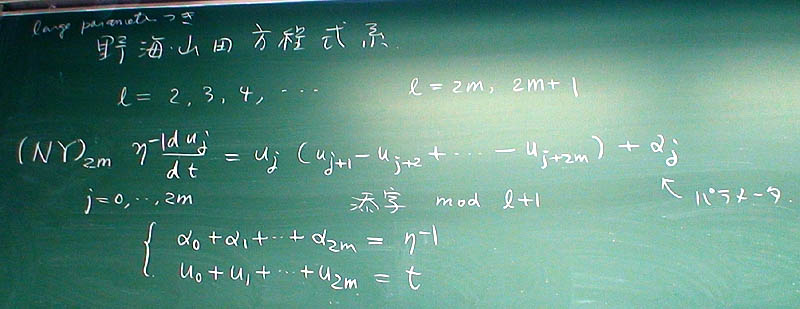 large parameter つき
野海・山田方程式系.
l = 2, 3, 4, ⋯ l = 2m, 2m+1
(NY)₂ₘ η⁻¹ duⱼ/dt = uⱼ (uⱼ₊₁ − uⱼ₊₂ + ⋯ − uⱼ₊₂ₘ) + αⱼ
j = 0, ⋯, 2m 添字 mod l+1 ↖ パラメータ.
{ α₀ + α₁ + ⋯ + α₂ₘ = η⁻¹
u₀ + u₁ + ⋯ + u₂ₘ = t